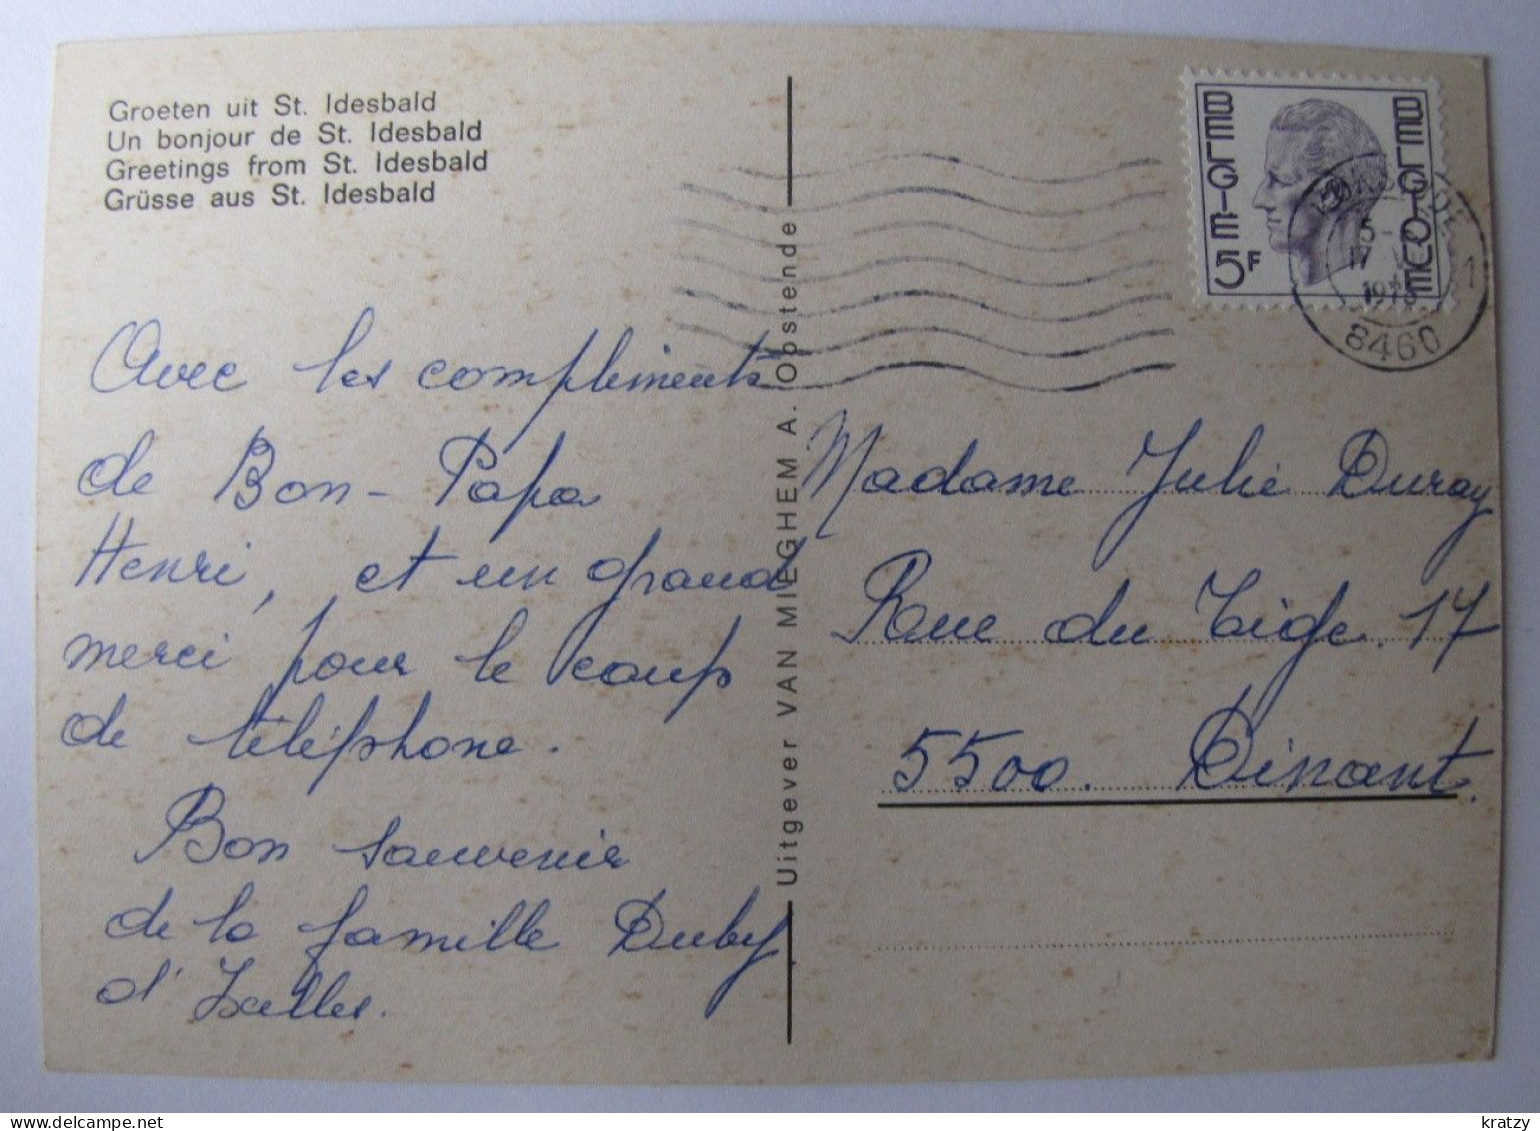 Groeten uit St. Idesbald
Un bonjour de St. Idesbald
Greetings from St. Idesbald
Grüsse aus St. Idesbald
Avec les compliments
de Bon-Papa
Henri, et un grand
merci pour le coup
de téléphone.
Bon souvenir
de la famille Duby
d'Ixelles.
Uitgever VAN MIEGHEM A. Oostende
BELGIE 5F
BELGIQUE
17
8460
1
Madame Julie Duray
Rue du Tige. 17
5500. Dinant.
kratzy